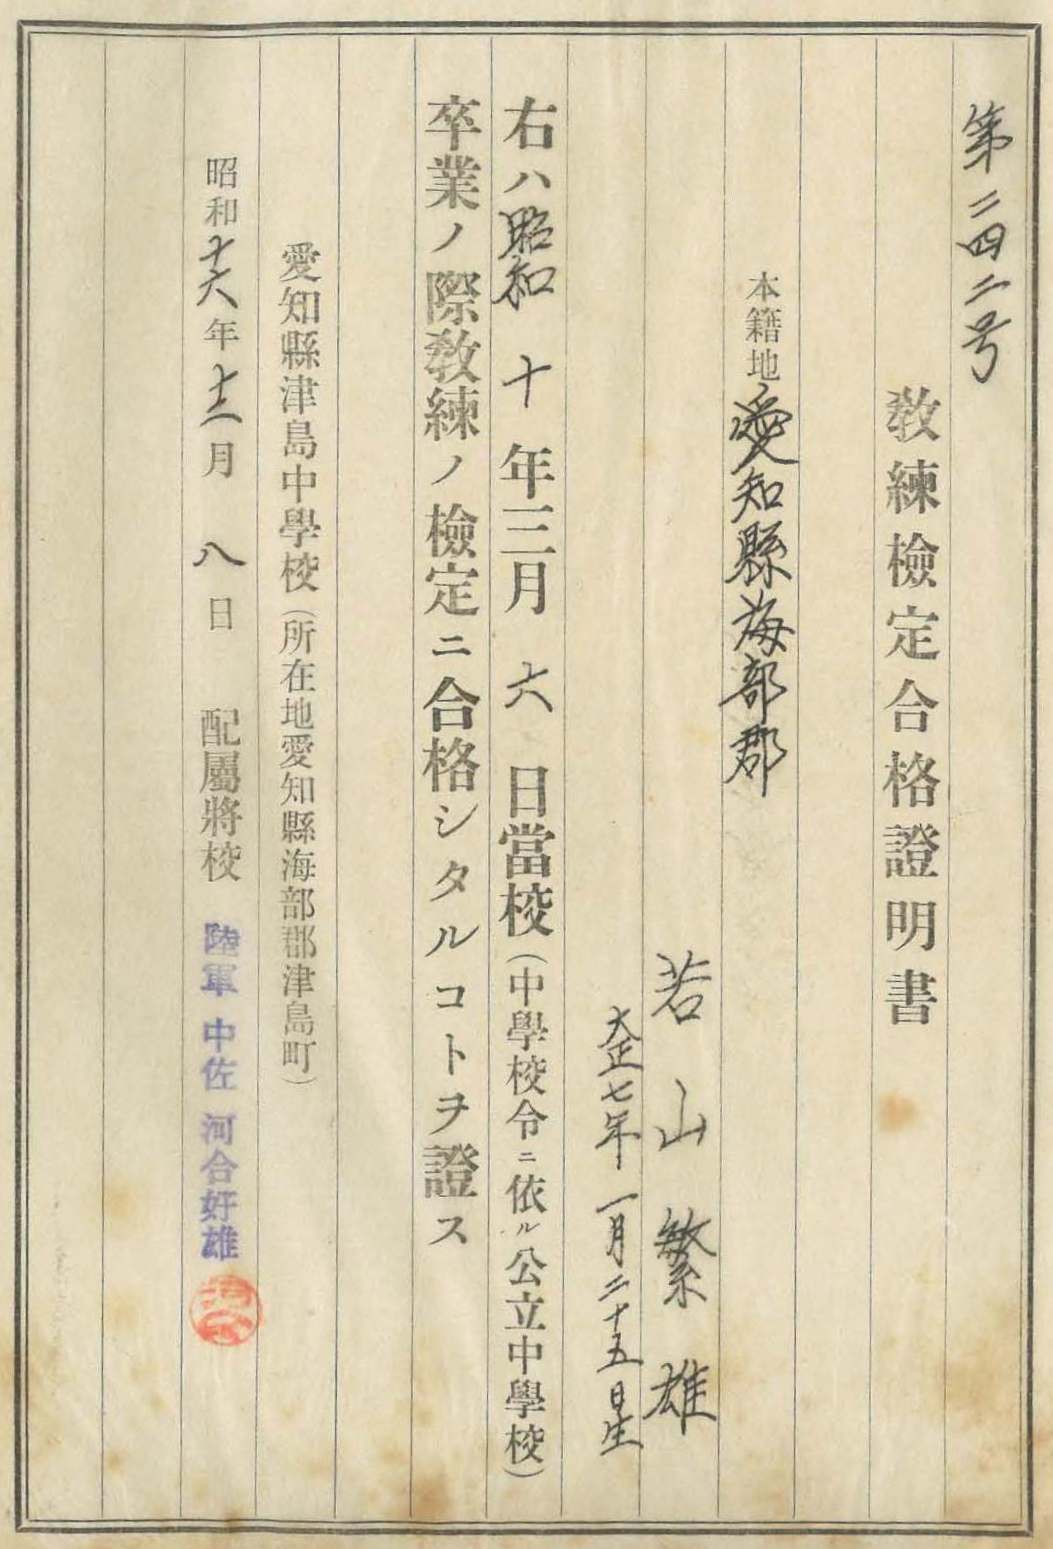 第二四二号
教練檢定合格證明書
本籍地愛知縣海部郡
若山繁雄
大正七年一月二十五日生
右ハ昭和十年三月六日當校(中學校令ニ依ル公立中學校)
卒業ノ際教練ノ檢定ニ合格シタルコトヲ證ス
愛知縣津島中學校(所在地愛知縣海部郡津島町)
昭和十六年十二月八日 配屬將校 陸軍中佐 河合好雄